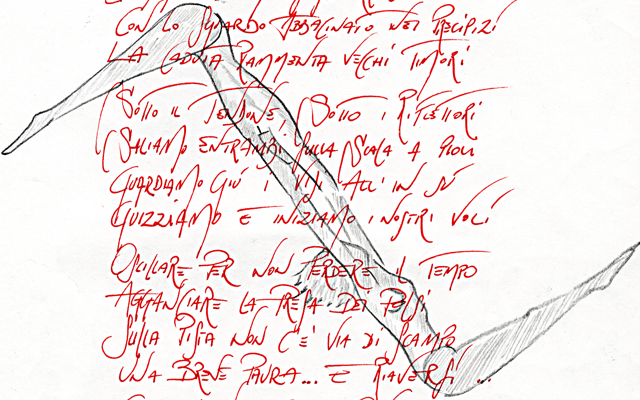 Con lo sguardo abbacinato nei precipizi
La caduta rammenta vecchi timori
Sotto il tendone, sotto i riflettori
Saliamo entrambi sulla scala a pioli
Guardiamo giù i visi all'in su
Guizziamo e iniziamo i nostri voli
Oscillare per non perdere il tempo
Agganciare la presa dei polsi
Sulla pista non c'è via di scampo
Una breve paura... e riaversi ...